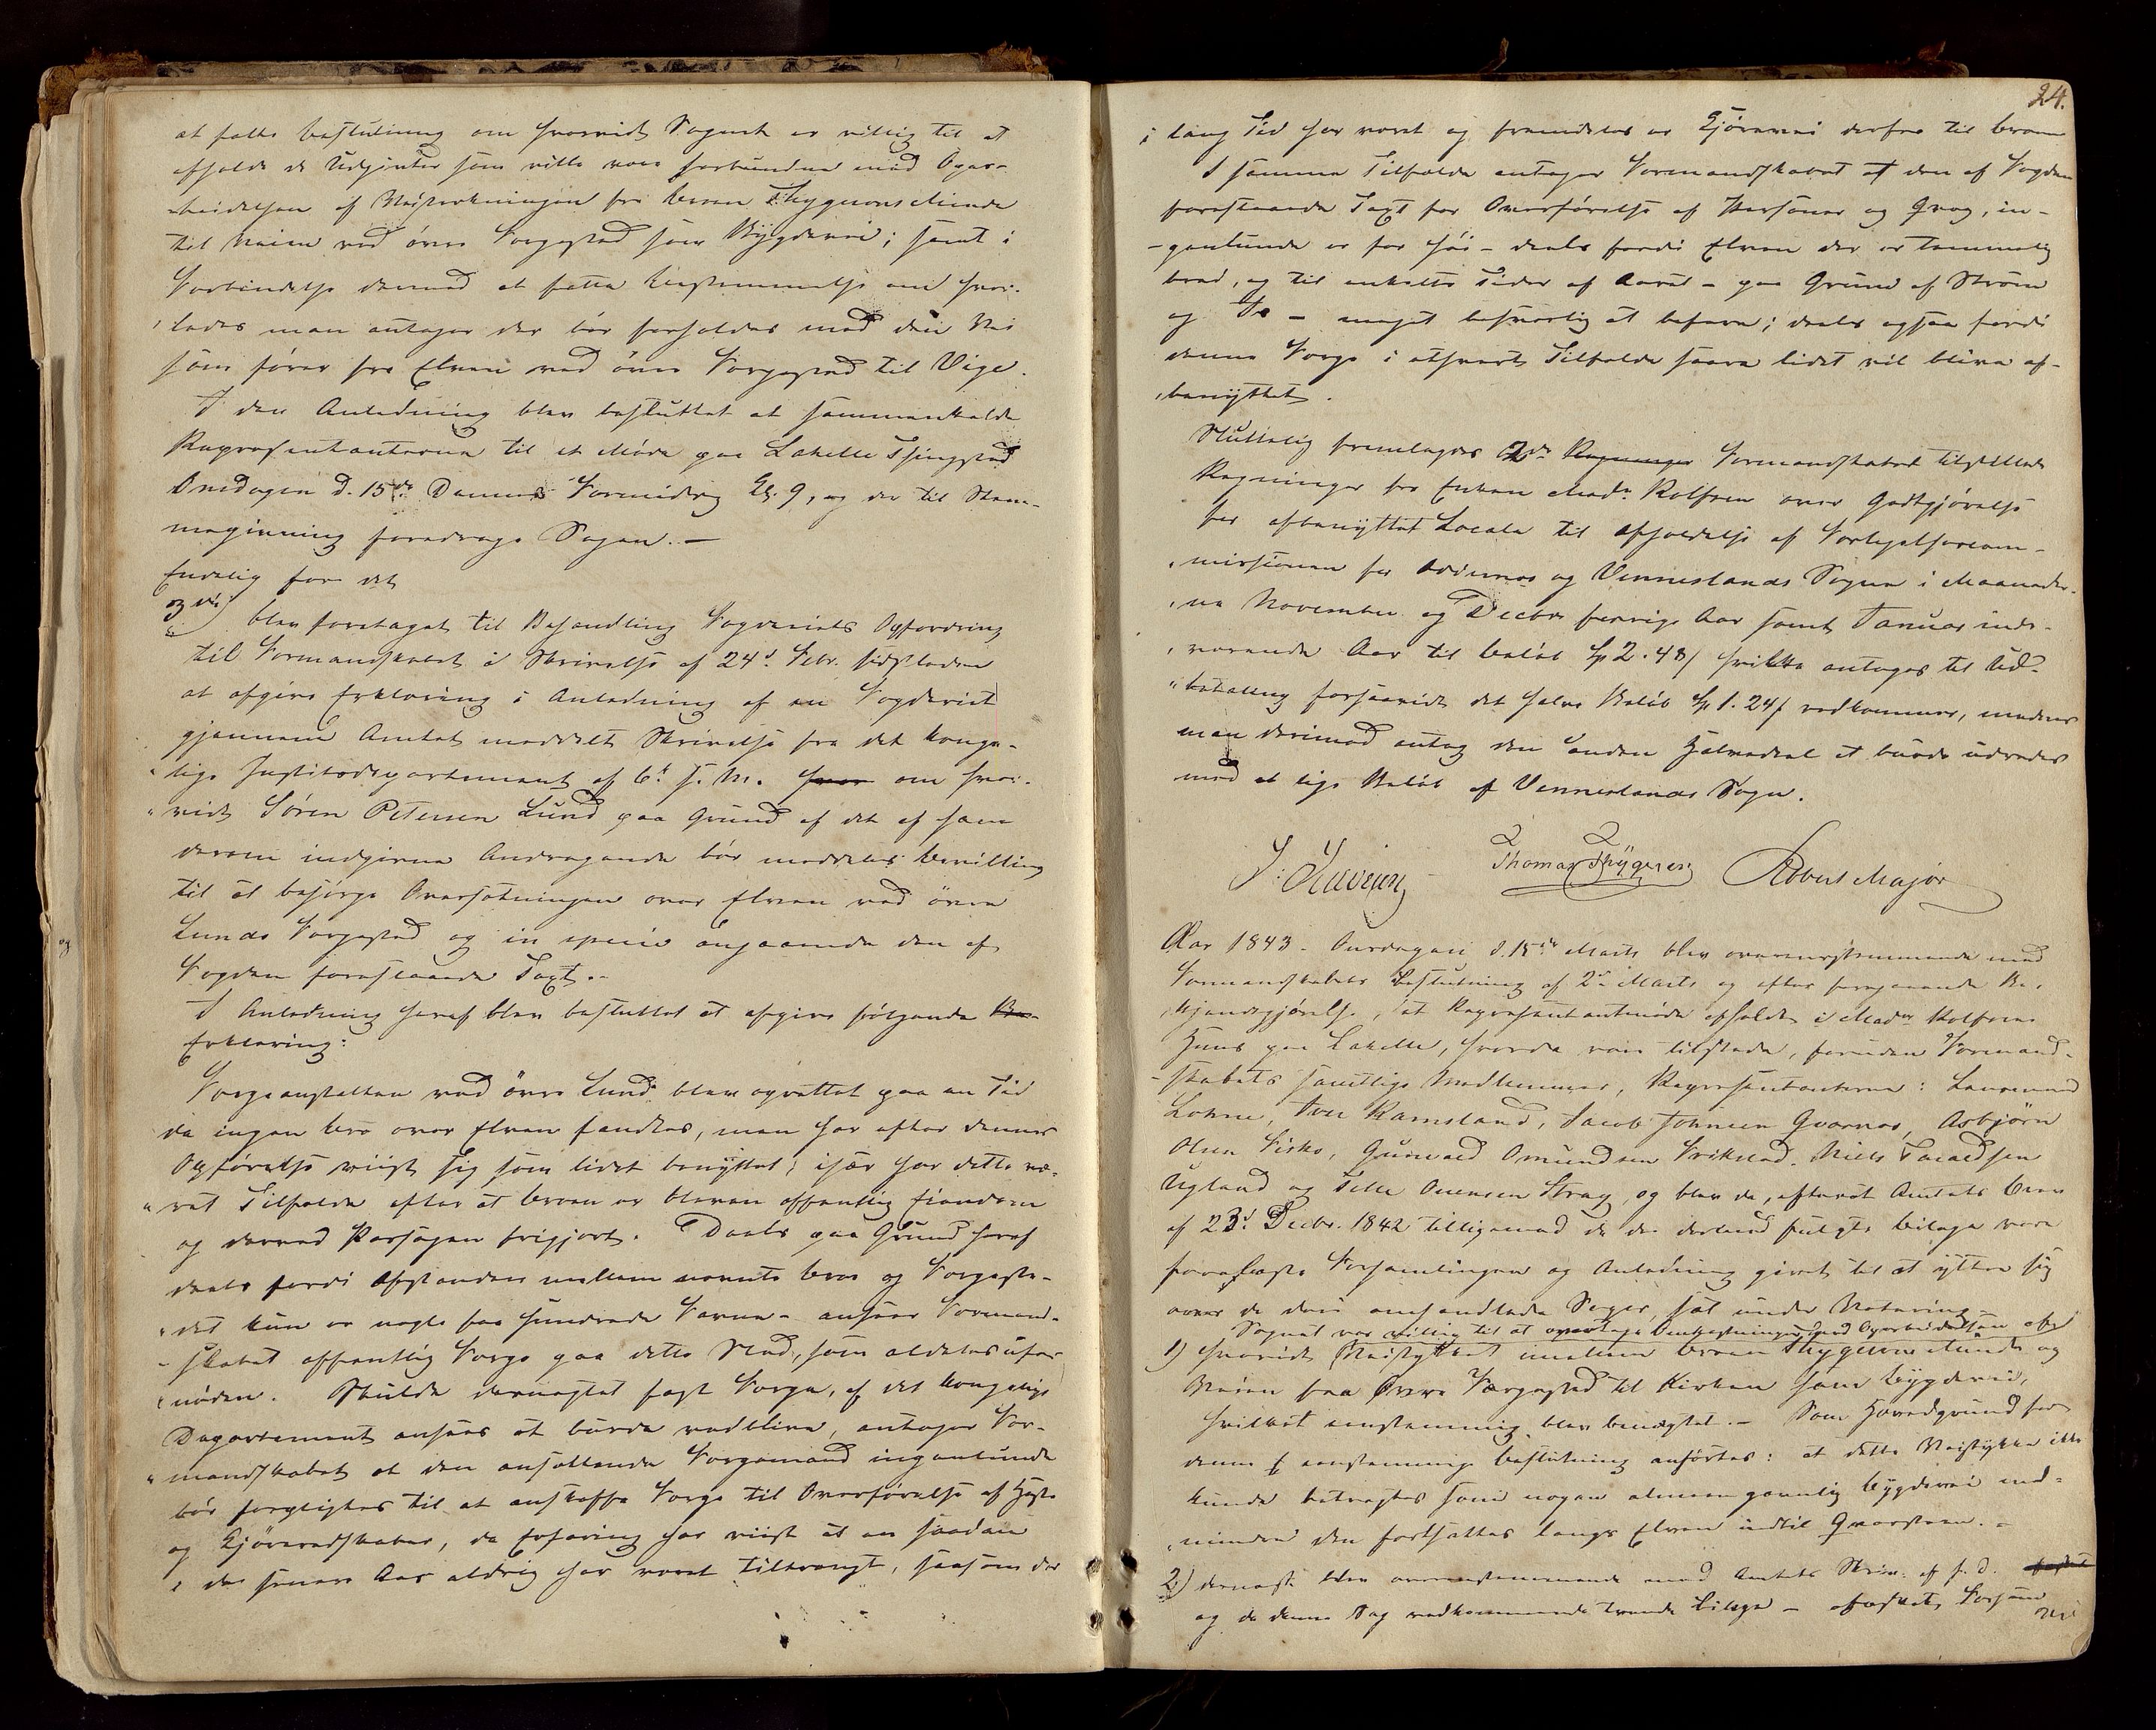 at fatte beslutning om hvorvidt Sognet er villig til at
afholde de Udgivter som ville være forbundne med Opar-
beidelsen af Veistrækningen fra broen Thygesons Minde
til Veien ved övre Færgested som Bygdevei; samt i
Forbindelse dermed at fatte bestemmelse om hvor-
ledes man antager der bör forholdes med den Vei
som förer fra Elven ved övre Færgested til Vige.
I den Anledning blev besluttet at sammenkalde
Repræsentanterne til et Möde paa Lahelle Thingsted
Onsdagen d. 15de Dennes Formiddag Kl. 9, og der til Stem-
megivning foredrage Sagen. –
Endelig for det
3die) blev foretaget til Behandling Fogderiets Opfordring
til Formandskabet i Skrivelse af 24d. Febr. sidstleden
at afgive Erklæring i Anledning af en Fogderiet
gjennem Amtet meddelt Skrivelse fra det konge-
lige Justitsdepartement af 6t f. M. hvor om hvor-
vidt Sören Petersen Lund paa Grund af det af ham
derom indgivne Andragende bör meddeles bevilling
til at besörge Oversætningen over Elven ved övre
Lunds Færgested og in specie angaaende den af
Fogden foreslaaede Taxt. –
I Anledning heraf blev besluttet at afgive fölgende Be-
Erklæring:
Færgeanstalten ved övre Lund blev oprettet paa en Tid
da ingen bro over Elven fandtes, men har efter dennes
Opförelse viist sig som lidet benyttet; især har dette væ-
ret Tilfælde efter at broen er bleven offentlig Eiendom
og derved Passagen frigjort. Deels paa Grund heraf
deels fordi Afstanden mellem nævnte bro og Færgeste-
det kun er nogle faa hundrede Favne – ansees Formand-
skabet offentlig Færge paa dette Sted, som aldeles ufor-
nöden. Skulde desuagtet fast Færge, af det kongelige
Departement ansees at burde vedblive, antager For-
mandskabet at den ansættende Færgemand ingenlunde
bör forpligtes til at anskaffe Færge til Overförelse af Heste
og Kjöreredskaber, da Erfaring har viist at en saadan
i de senere Aar aldrig har været tiltrængt, saasom der
24.
i lang Tid har været og fremdeles er Kjörevei derfra til broen
I samme Tilfælde antager Formandskabet at den af Fogden
foreslaaede Taxt for Overförelse af Personer og Qvæg, in-
genlunde er for höi – deels fordi Elven der er temmelig
bred, og til enkelte Tider af Aaret – paa Grund af Ström
og Is – meget besværlig at befare; deels ogsaa fordi
denne Færge i ethvert Tilfælde saare lidet vil blive af-
benyttet.
Sluttelig fremlagdes 2de Regninger Formandskabet tilstillede
Regninger fra Enken Madm Rolfsen over Godtgjörelse
for afbenyttet Locale til Afholdelse af Forligelsescom-
missionen for Oddernes og Venneslands Sogne i Maaneder-
ne November og Decbr forrige Aar samt Januar inde-
værende Aar til belöb Sp 2. 48 s hvilke antoges til Ud-
betaling forsaavidt det halve Belöb Sp 1. 24 s vedkommer, medens
man derimod antog den anden Halvedeel at burde udredes
med et lige Belöb af Vennelands Sogn.
Thomas Thygesen Robert Major
Aar 1843. Onsdagen d. 15de Marts blev overeensstemmende med
Formandskabets Beslutning af 2d. Marts og efter foregaaende Be-
kjendtgjörelse, et Repræsentantmöde afholdt i Madm Rolfsens
Huus paa Lahelle, hvorda vare tilstede, foruden Formand-
skabets samtlige Medlemmer, Repræsentanterne:
Iver Ramsland, Jacob Johnsen Qvarnes, Asbjörn
Olsen Fiske, Gunvald Omundsen Frikstad, Niels Taraldsen
Ugland og Salve Svensen Stray, og blev da, efterat Amtets brev
af 23d Decbr. 1842 tilligemed de den derved fulgte bilage vare
forelæste Forsamlingen og Anledning givet til at yttre sig
over de deri omhandlede Sager, sat under Votering
Sognet var villig til at overtage Omkostningerne med Oparbeidelsen af
1) Hvorvidt Veistykket imellem broen Thygesons Minde og
Veien fra Övre Færgested til Kirken som bygdevei,
hvilket eenstemmig blev benægtet. – Som Hovedgrund for
denne eenstemmige beslutning anförtes: at dette Veistykke ikke
kunde betragtes som nogen almeengavnlig bygdevei med-
mindre den fortsættes langs Elven indtil Qvarsteen. –
2) dernæst blev overeensstemmende med Amtets Skriv. af s. D.
og de denne Sag vedkommende tvende bilage –